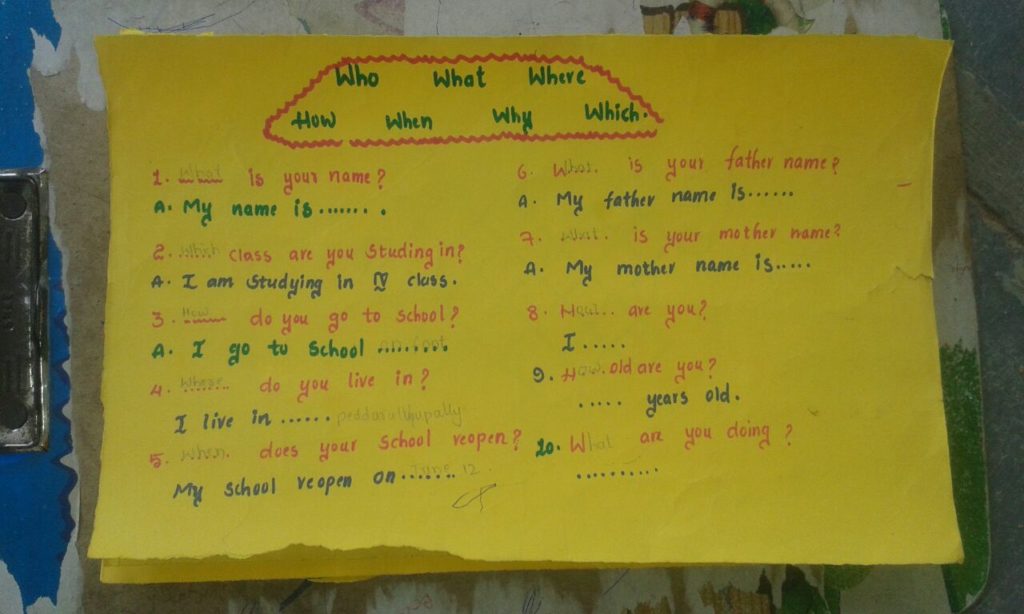 Who What Where
How When Why Which.
1. What is your name?
A. My name is ....... .
2. Which class are you Studing in?
A. I am Studying in IV class.
3. How do you go to School?
A. I go to School on foot
4. Where do you live in?
I live in ......
5. When does your School reopen?
My School reopen on June 12.
6. What is your father name?
A. My father name is......
7. What is your mother name?
A. My mother name is.....
8. How are you?
I .....
9. How old are you?
..... years old.
10. What are you doing?
..........